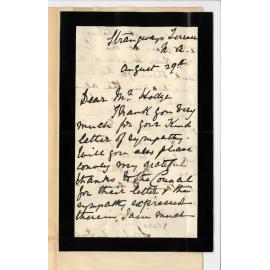 Strangways Terrace
N. A.
August 29th
Dear Mr Hodge
Thank you very
much for your kind
letter of sympathy.
Will you also please
convey my grateful
thanks to the Council
for their letter & the
sympathy expressed
therein, I am much